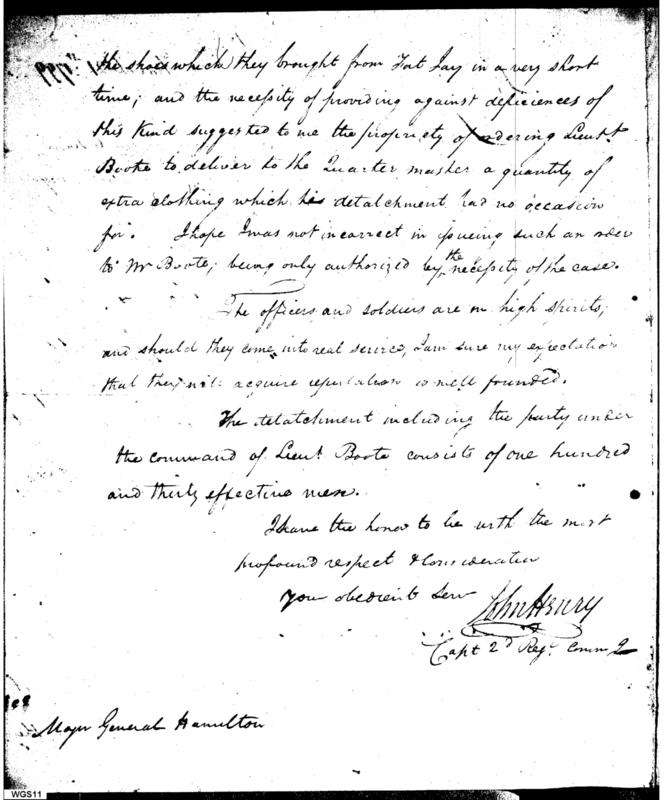 the shoes which they brought from Fort Jay in a very short
time; and the necessity of providing against deficiences of
this kind suggested to me the propriety of ordering Lieut.
Boote to deliver to the Quarter master a quantity of
extra clothing which his detatchment had no occasion
for. I hope I was not incorrect in issueing such an order
to Mr Boote; being only authorized by the necessity of the case.
The officers and soldiers are in high spirits;
and should they come into real service, I am sure my expectation
that they will acquire reputation is well founded.
The detatchment including the party under
the command of Lieut. Boote consists of one hundred
and thirty effective men.
I have the honor to be with the most
profound respect & Consideration
Your obedient Serv
John Henry
Capt 2d Regt. Comm
Major General Hamilton
WGS11